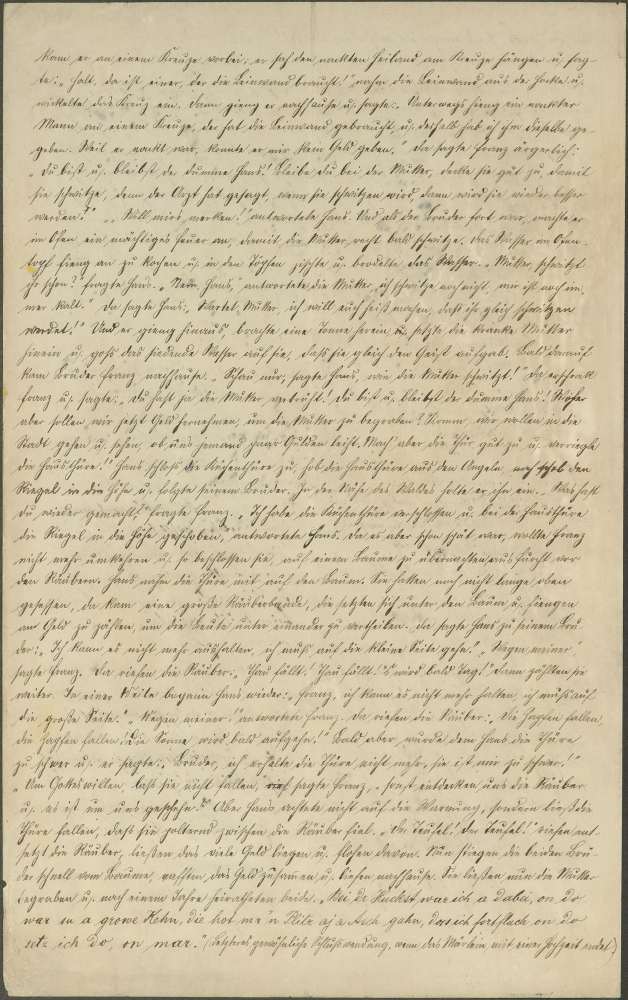 kam er an einem Kreuze vorbei; er sah den nackten Heiland am Kreuze hängen u. sag-
te: „Halt, da ist einer, der die Leinwand braucht!" nahm die Leinwand aus der Hocke u.
wickelte das Kreuz ein. Dann gieng er nachhause u. sagte: „Unterwegs hieng ein nackter
Mann an einem Kreuze, der hat die Leinwand gebraucht, u. deshalb hab ich ihm dieselbe ge-
geben. Weil er nackt war, konnte er mir kein Geld geben." Da sagte Franz ärgerlich:
„Du bist u. bleibst der dumme Hans! Bleibe du bei der Mutter, decke sie gut zu, damit
sie schwitze, denn der Arzt hat gesagt, wenn sie schwitzen wird, dann wird sie wieder besser
werden." „Will mirs merken!" antwortete Hans. Und als der Bruder fort war, machte er
im Ofen ein mächtiges Feuer an, damit die Mutter recht bald schwitze. Das Wasser im Ofen-
topf fieng an zu kochen u. in den Töpfen zischte u. brodelte das Wasser. „Mutter, schwitzt
ihr schon?" fragte Hans. „Nein, Hans," antwortete die Mutter, „ich schwitze noch nicht, mir ist noch im-
mer kalt." Da sagte Hans: „Wartet, Mutter, ich will euch heiß machen, daß ihr gleich schwitzen
werdet!" Und er gieng hinaus, brachte eine Tonne herein u. setzte die kranke Mutter
hinein u. goß das siedende Wasser auf sie, daß sie gleich den Geist aufgab. Bald darauf
kam Bruder Franz nachhause. „Schau nur, sagte Hans, wie die Mutter schwitzt!" Da erschrak
Franz u. sagte: „Du hast ja die Mutter gebrüht! Du bist u. bleibst der dumme Hans! Woher
aber sollen wir jetzt Geld hernehmen, um die Mutter zu begraben? Komm, wir wollen in die
Stadt gehen u. sehen, ob uns jemand paar Gulden leiht. Mach aber die Thür gut zu u. verriegle
die Hausthüre!" Hans schloß die Küchenthüre zu, hob die Hausthüre aus den Angeln, schob den
Riegel in die Höhe u. folgte seinem Bruder. In der Nähe des Waldes holte er ihn ein. „Was hast
du wieder gemacht?" fragte Franz. „Ich habe die Küchenthüre verschlossen u. bei der Hausthüre
den Riegel in die Höhe geschoben," antwortete Hans. Da es aber schon spät war, wollte Franz
nicht mehr umkehren u. so beschlossen sie, auf einem Baume zu übernachten aus Furcht vor
den Räubern. Hans nahm die Thüre mit auf den Baum. Sie hatten noch nicht lange oben
gesessen, da kam eine große Räuberbande, die setzten sich unter den Baum u. fiengen
an Geld zu zählen, um die Beute unter einander zu vertheilen. Da sagte Hans zu seinem Bru-
der: „Ich kann es nicht mehr aushalten, ich muß auf die kleine Seite gehn." „Wegen meiner,"
sagte Franz. Da riefen die Räuber: „Thau fällt! Thau fällt! 's wird bald Tag!" Dann zählten sie
weiter. In einer Weile begann Hans wieder: „Franz, ich kann es nicht mehr halten, ich muß auf
die große Seite." „Wegen meiner!" antwortete Franz. Da riefen die Räuber: „Die Zapfen fallen,
die Zapfen fallen! Die Sonne wird bald aufgehn!" Bald aber wurde dem Hans die Thüre
zu schwer u. er sagte: „Bruder, ich erhalte die Thüre nicht mehr, sie ist mir zu schwer."
„Um Gotteswillen, laß sie nicht fallen," sagte Franz, „sonst entdecken uns die Räuber
u. es ist um uns geschehn." Aber Hans achtete nicht auf die Warnung, sondern ließ die
Thüre fallen, daß sie polternd zwischen die Räuber fiel. „Der Teufel! der Teufel!" riefen ent-
setzt die Räuber, ließen das viele Geld liegen u. flohen davon. Nun stiegen die beiden Brü-
der schnell vom Baume, rafften das Geld zusamen u. liefen nachhause. Sie ließen nun die Mutter
begraben u. nach einem Jahre heiratheten beide. „Bei dr Huckst war ich a dabei, on do
war en a growe Hehn, die hot mr 'n Pilz af a Asch gahn, dos ich fortflach on do
setz ich do, on mar." (Letzteres gewöhnliche Schlußwendung, wenn das Märlein mit einer Hochzeit endet.)